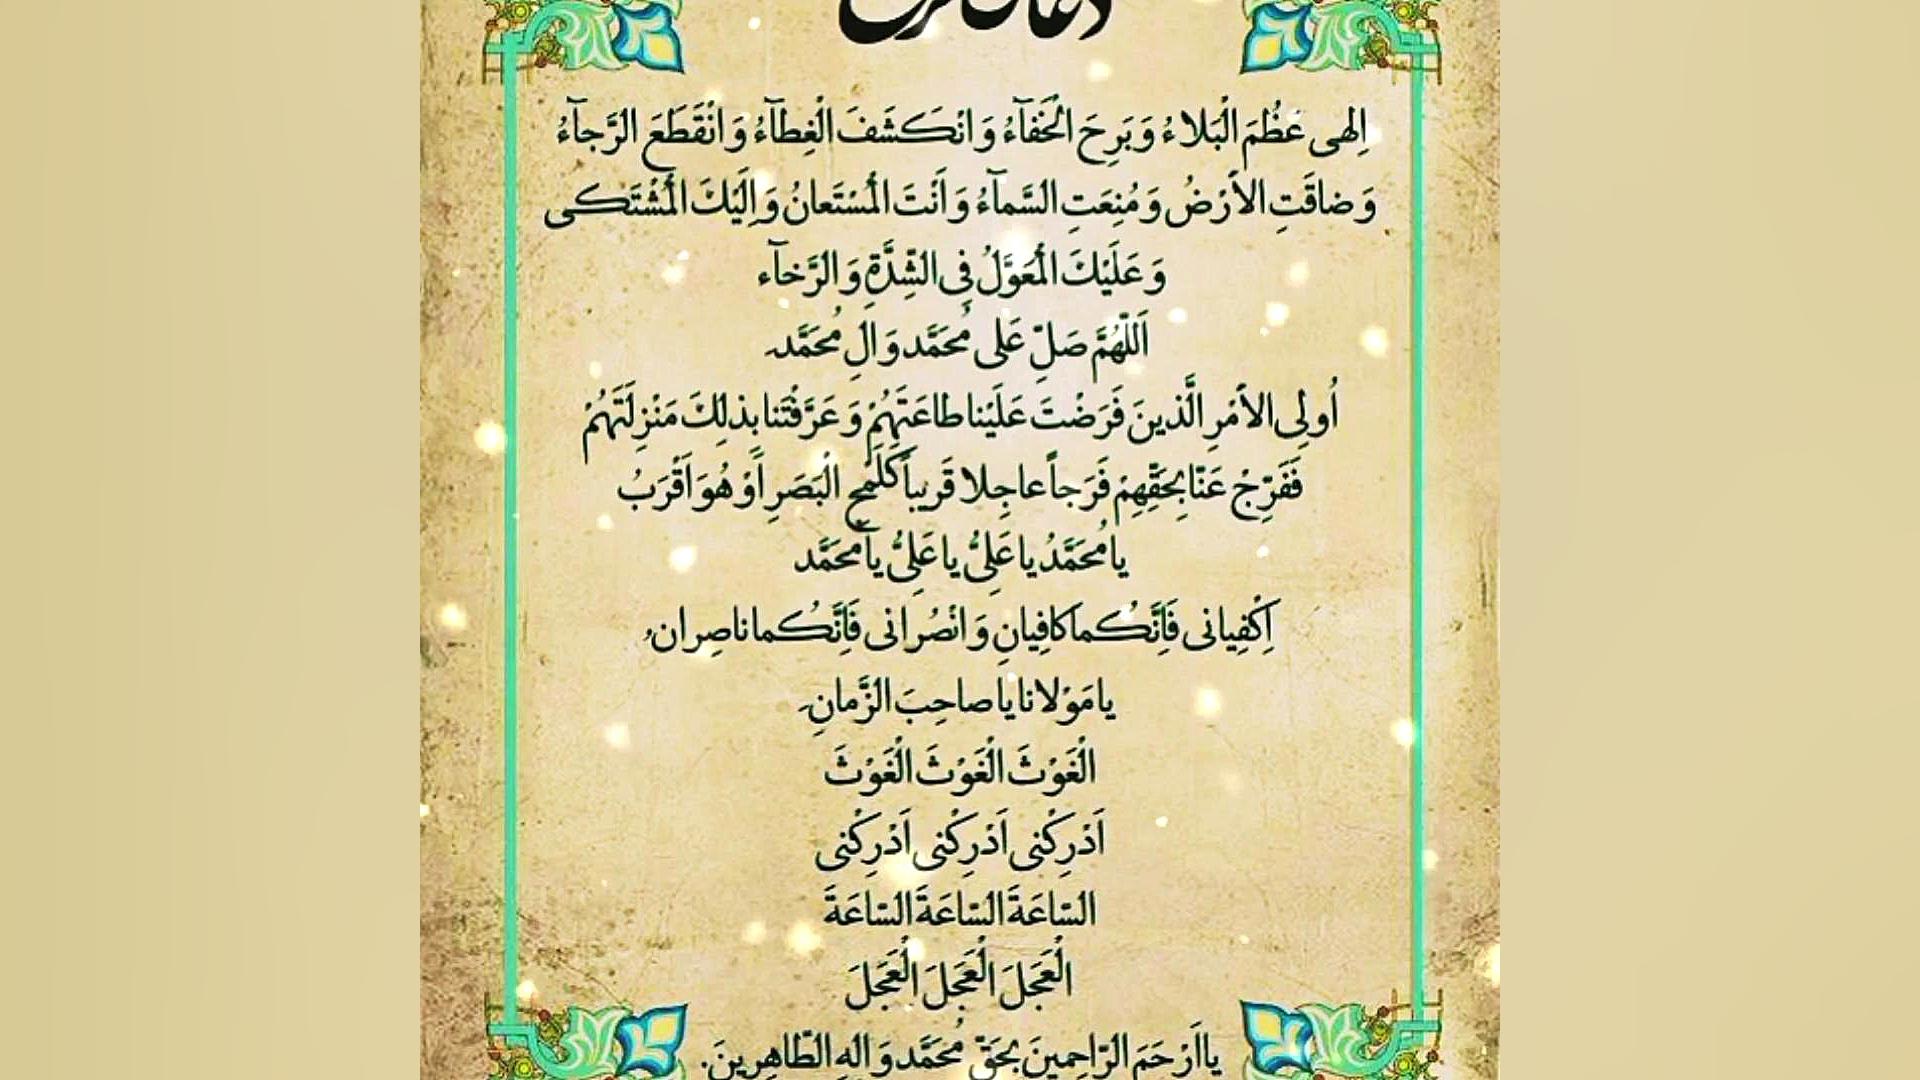 دعای فرج
اِلهی عَظُمَ الْبَلاءُ وَ بَرِحَ الْخَفآءُ وَ انْكَشَفَ الْغِطآءُ وَ انْقَطَعَ الرَّجآءُ
وَ ضاقَتِ الاَرْضُ وَ مُنِعَتِ السَّمآءُ وَ اَنْتَ الْمُسْتَعانُ وَ اِلَيْكَ الْمُشْتَكی
وَ عَلَيْكَ الْمُعَوَّلُ فِی الشِّدَّةِ وَ الرَّخآء
اَللّهُمَّ صَلِّ عَلی مُحَمَّد وَ الِ مُحَمَّد.
اُولِی الاَمْرِ الَّذينَ فَرَضْتَ عَلَيْنا طاعَتَهُمْ وَ عَرَّفْتَنا بِذلِكَ مَنْزِلَتَهُمْ
فَفَرِّجْ عَنّا بِحَقِّهِمْ فَرَجاً عاجِلا قَريباً كَلَمْحِ الْبَصَرِ اَوْ هُوَ اَقْرَبُ
يا مُحَمَّدُ يا عَلِیُّ يا عَلِیُّ يا مُحَمَّد
اِكْفِيانی فَاِنَّكُما كافِيانِ وَ انْصُرانی فَاِنَّكُما ناصِران
يا مَوْلانا يا صاحِبَ الزَّمانِ
الْغَوْثَ الْغَوْثَ الْغَوْثَ
اَدْرِكْنی اَدْرِكْنی اَدْرِكْنی
السّاعَةَ السّاعَةَ السّاعَةَ
الْعَجَلَ الْعَجَلَ الْعَجَلَ
يا اَرْحَمَ الرّاحِمينَ بِحَقِّ مُحَمَّد وَ الِهِ الطّاهِرينَ.